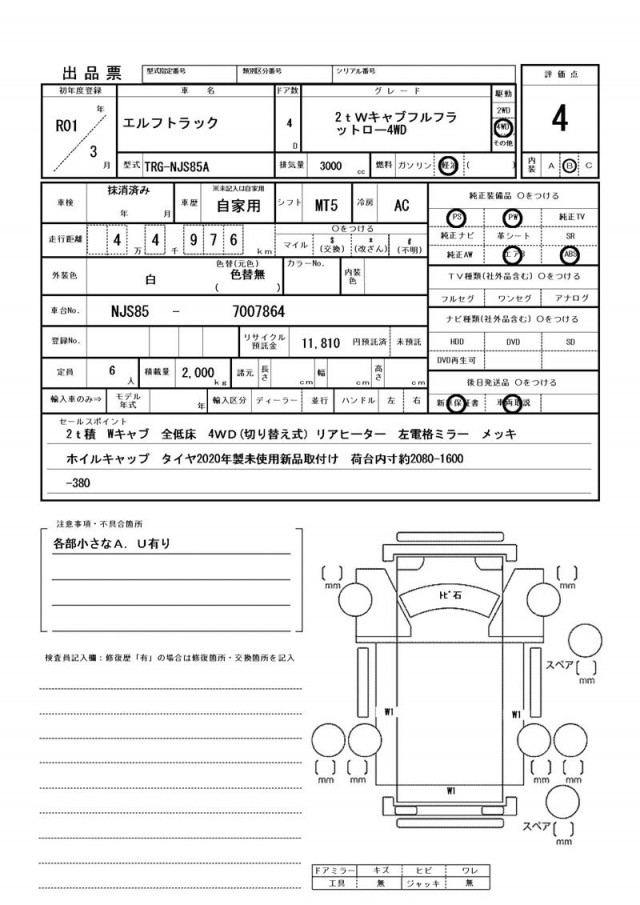 出品票 型式指定番号 類別区分番号 シリアル番号
評価点
4
内装 A B C
初年度登録 車名 ドア数 グレード 駆動
R01 年 3 月
エルフトラック
4 D
2tWキャブフルフラ
ットロー4WD
2WD
4WD
その他
型式 TRG-NJS85A 排気量 3000 cc 燃料 ガソリン 軽油 ( )
車検 抹消済み 年 月 車歴 ※未記入は自家用 自家用 シフト MT5 冷房 AC
走行距離 4 万 4 千 9 7 6 km
○をつける
マイル $(交換) *(改ざん) #(不明)
外装色 白 色替(元色) 色替無 ( ) カラーNo. 内装色
車台No. NJS85 - 7007864
登録No. リサイクル預託金 11,810 円預託済 未預託
定員 6 人 積載量 2,000 kg 諸元 長さ cm 幅 cm 高さ cm
輸入車のみ⇒ モデル年式 年 輸入区分 ディーラー 並行 ハンドル 左 右
純正装備品 ○をつける
PS PW 純正TV
純正ナビ 革シート SR
純正AW エアB ABS
TV種類(社外品含む) ○をつける
フルセグ ワンセグ アナログ
ナビ種類(社外品含む) ○をつける
HDD DVD SD
DVD再生可
後日発送品 ○をつける
新車保証書 車両取説
セールスポイント
2t積 Wキャブ 全低床 4WD(切り替え式) リアヒーター 左電格ミラー メッキ
ホイルキャップ タイヤ2020年製未使用新品取付け 荷台内寸約2080-1600
-380
注意事項・不具合箇所
各部小さなA.U有り
検査員記入欄:修復歴「有」の場合は修復箇所・交換箇所を記入
[ ] mm
[ ] mm
トビ石
スペア [ ] mm
W1
W1
[ ] mm
[ ] mm
[ ] mm
[ ] mm
W1
スペア [ ] mm
ドアミラー キズ ヒビ ワレ
工具 無 ジャッキ 無